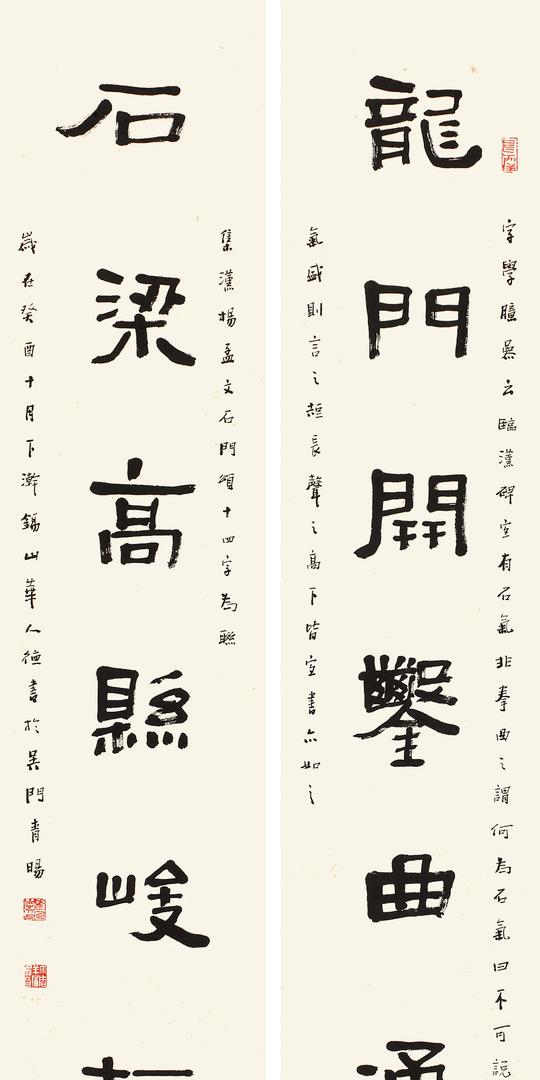 字學臆參云臨漢碑宜有石氣非拳曲之謂何為石氣曰不可説
龍門開鑿曲通
氣盛則言之短長聲之高下皆宜書亦如之
集漢楊孟文石門頌十四字為聯
石梁高縣峻
歲在癸酉十月下澣錫山華人德書於吳門青暘